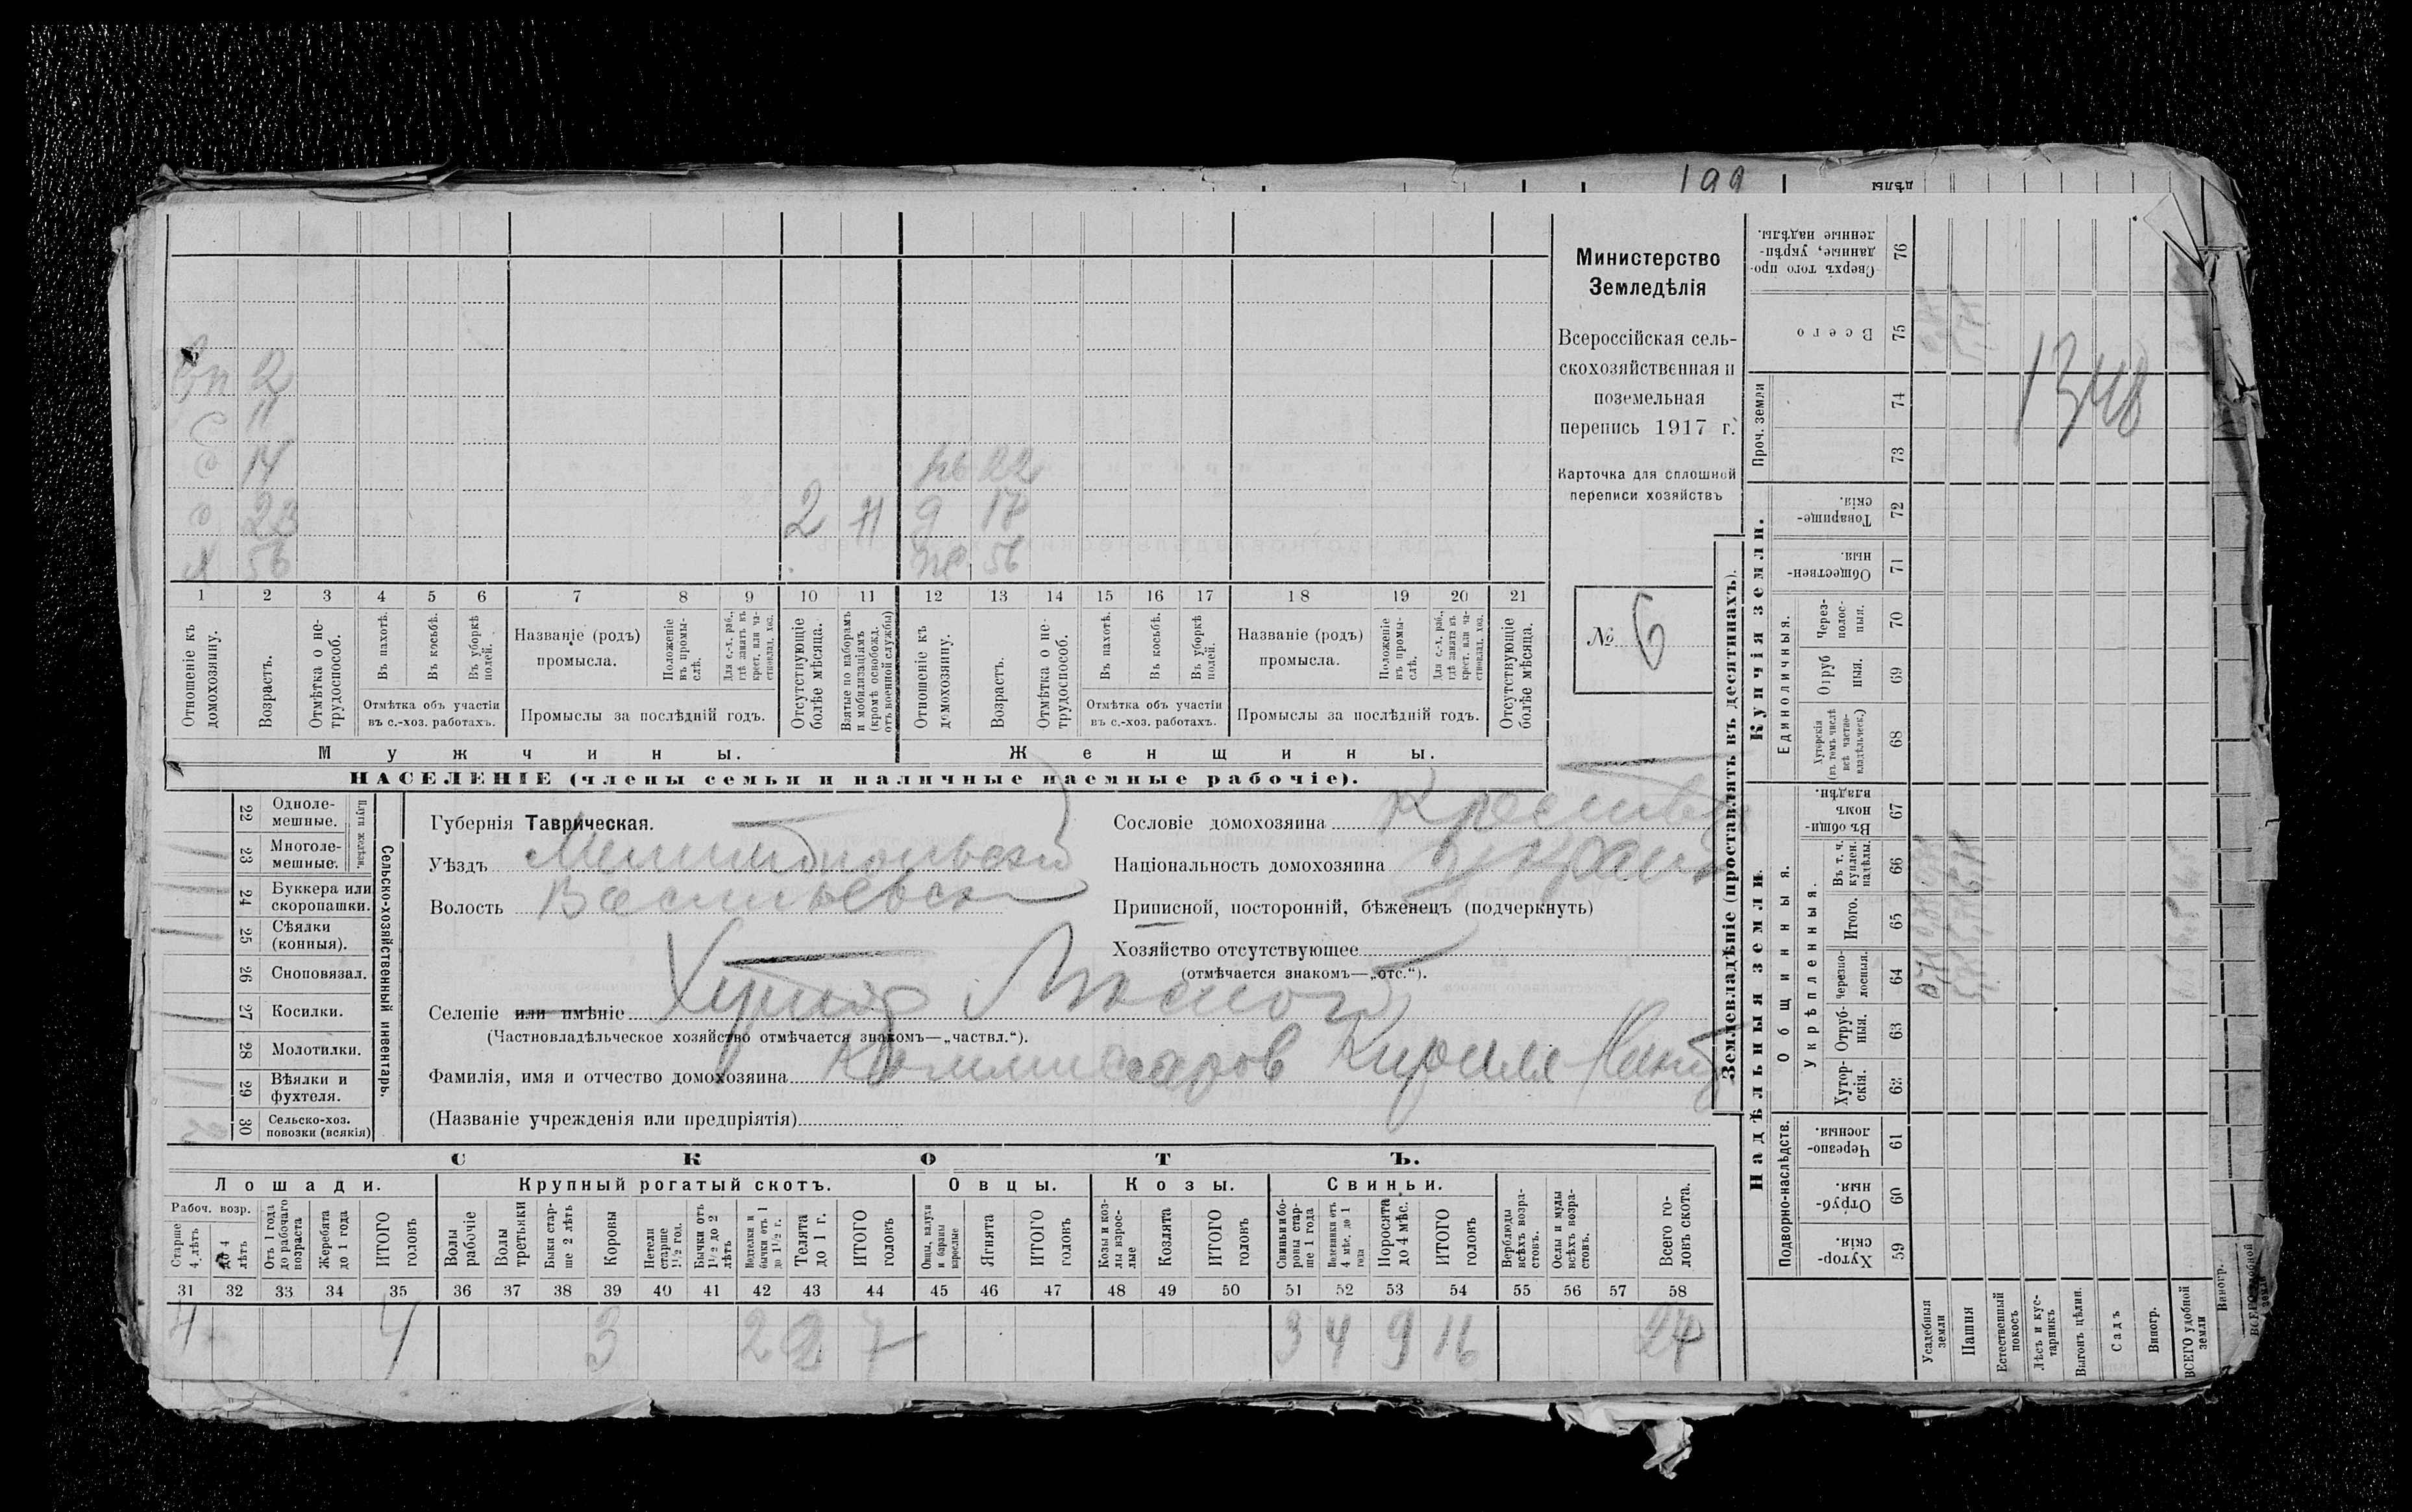 199
дѣлы
вн 2
с 11
с 14 нв 22
с 23 2 11 д 17
х 56 же. 56
1 2 3 4 5 6 7 8 9 10 11 12 13 14 15 16 17 18 19 20 21
Отношеніе къ домохозяину.
Возрастъ.
Отмѣтка о не-трудоспособ.
Въ пахотѣ.
Въ косьбѣ.
Въ уборкѣ полей.
Отмѣтка объ участіи
въ с.-хоз. работахъ.
Названіе (родъ)
промысла.
Положеніе въ промы-слѣ.
Для с.-х. раб., гдѣ занятъ въ крест. или ча-стновлад. хоз.
Промыслы за послѣдній годъ.
Отсутствующіе болѣе мѣсяца.
Взятые по наборамъ и мобилизаціямъ (кромѣ освобожд. отъ военной службы)
Отношеніе къ домохозяину.
Возрастъ.
Отмѣтка о не-трудоспособ.
Въ пахотѣ.
Въ косьбѣ.
Въ уборкѣ полей.
Отмѣтка объ участіи
въ с.-хоз. работахъ.
Названіе (родъ)
промысла.
Положеніе въ промы-слѣ.
Для с.-х. раб., гдѣ занята въ крест. или ча-стновлад. хоз.
Промыслы за послѣдній годъ.
Отсутствующіе болѣе мѣсяца.
Мужчины.
Женщины.
НАСЕЛЕНІЕ (члены семьи и наличные наемные рабочіе).
Министерство
Земледѣлія
Всероссійская сель-
скохозяйственная и
поземельная
перепись 1917 г.
Карточка для сплошной
переписи хозяйствъ
№ 6
22 Одноле-мешные.
23 Многоле-мешные.
Плуги желѣзн.
24 Буккера или скоропашки.
25 Сѣялки (конныя).
26 Сноповязал.
27 Косилки.
28 Молотилки.
29 Вѣялки и фухтеля.
30 Сельско-хоз. повозки (всякія)
Сельско-хозяйственный инвентарь.
Губернія Таврическая.
Уѣздъ Мелитопольскій
Волость Васильевск
Сословіе домохозяина Крестьян
Національность домохозяина украин
Приписной, посторонній, бѣженецъ (подчеркнуть)
Хозяйство отсутствующее
(отмѣчается знакомъ—„отс.“).
Селеніе или имѣніе Хутор
(Частновладѣльческое хозяйство отмѣчается знакомъ—„частвл.“).
Фамилія, имя и отчество домохозяина Коммисаров Кирилл
(Названіе учрежденія или предпріятія)
СКОТЪ.
Лошади. Крупный рогатый скотъ. Овцы. Козы. Свиньи.
Рабоч. возр.
Старше 4 лѣтъ
до 4 лѣтъ
Отъ 1 года до рабочаго возраста
Жеребята до 1 года
ИТОГО головъ
Волы рабочіе
Волы третьяки
Быки стар-ше 2 лѣтъ
Коровы
Нетели старше 1½ год.
Бычки отъ 1½ до 2 лѣтъ
Подтелки и бычки отъ 1 до 1½ г.
Телята до 1 г.
ИТОГО головъ
Овцы, валухи и бараны взрослые
Ягнята
ИТОГО головъ
Козы и коз-лы взрос-лые
Козлята
ИТОГО головъ
Свиньи и бо-ровы стар-ше 1 года
Подсвинки отъ 4 мѣс. до 1 года
Поросята до 4 мѣс.
ИТОГО головъ
Верблюды всѣхъ возра-стовъ.
Ослы и мулы всѣхъ возра-стовъ.
Всего го-ловъ скота.
31 32 33 34 35 36 37 38 39 40 41 42 43 44 45 46 47 48 49 50 51 52 53 54 55 56 57 58
4 4 3 2 2 7 3 4 9 16 27
Землевладѣніе (проставлять въ десятинахъ).
Надѣльныя земли.
Купчія земли.
Проч. земли
Подворно-наслѣдств.
Общинныя.
Укрѣпленныя.
Единоличныя.
Хутор-скія. 59
Отруб-ныя. 60
Черезпо-лосныя. 61
Хутор-скія. 62
Отруб-ныя. 63
Черезпо-лосныя. 64
Итого. 65
Въ т. ч. куплен. надѣлы. 66
Въ общи-номъ владѣн. 67
Хуторскія (въ томъ числѣ всѣ частно-владѣльческ.) 68
Отруб ныя. 69
Через-полос-ныя. 70
Обществен-ныя. 71
Товарище-скія. 72
73
74
Всего 75
Сверхъ того про-данные, укрѣп-ленные надѣлы. 76
1348
Усадебныя земли
Пашня
Естественный покосъ
Лѣсъ и кус-тарникъ
Выгонъ цѣлин.
Садъ
Виногр.
ВСЕГО удобной земли
Виногр.
ВСЕГО удобной земли